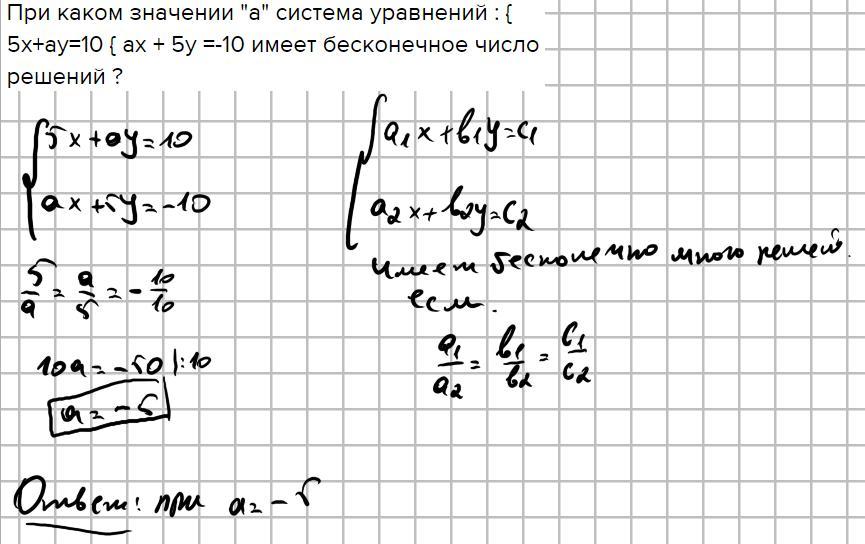 При каком значении "а" система уравнений : {
5x+ay=10 { ax + 5y =-10 имеет бесконечное число
решений ?
5x+ay=10
ax+5y=-10
5/a = a/5 = -10/10
10a=-50 |:10
a=-5
a₁x+b₁y=c₁
a₂x+b₂y=c₂
имеет бесконечно много решен.
если.
a₁/a₂ = b₁/b₂ = c₁/c₂
Ответ: при a=-5